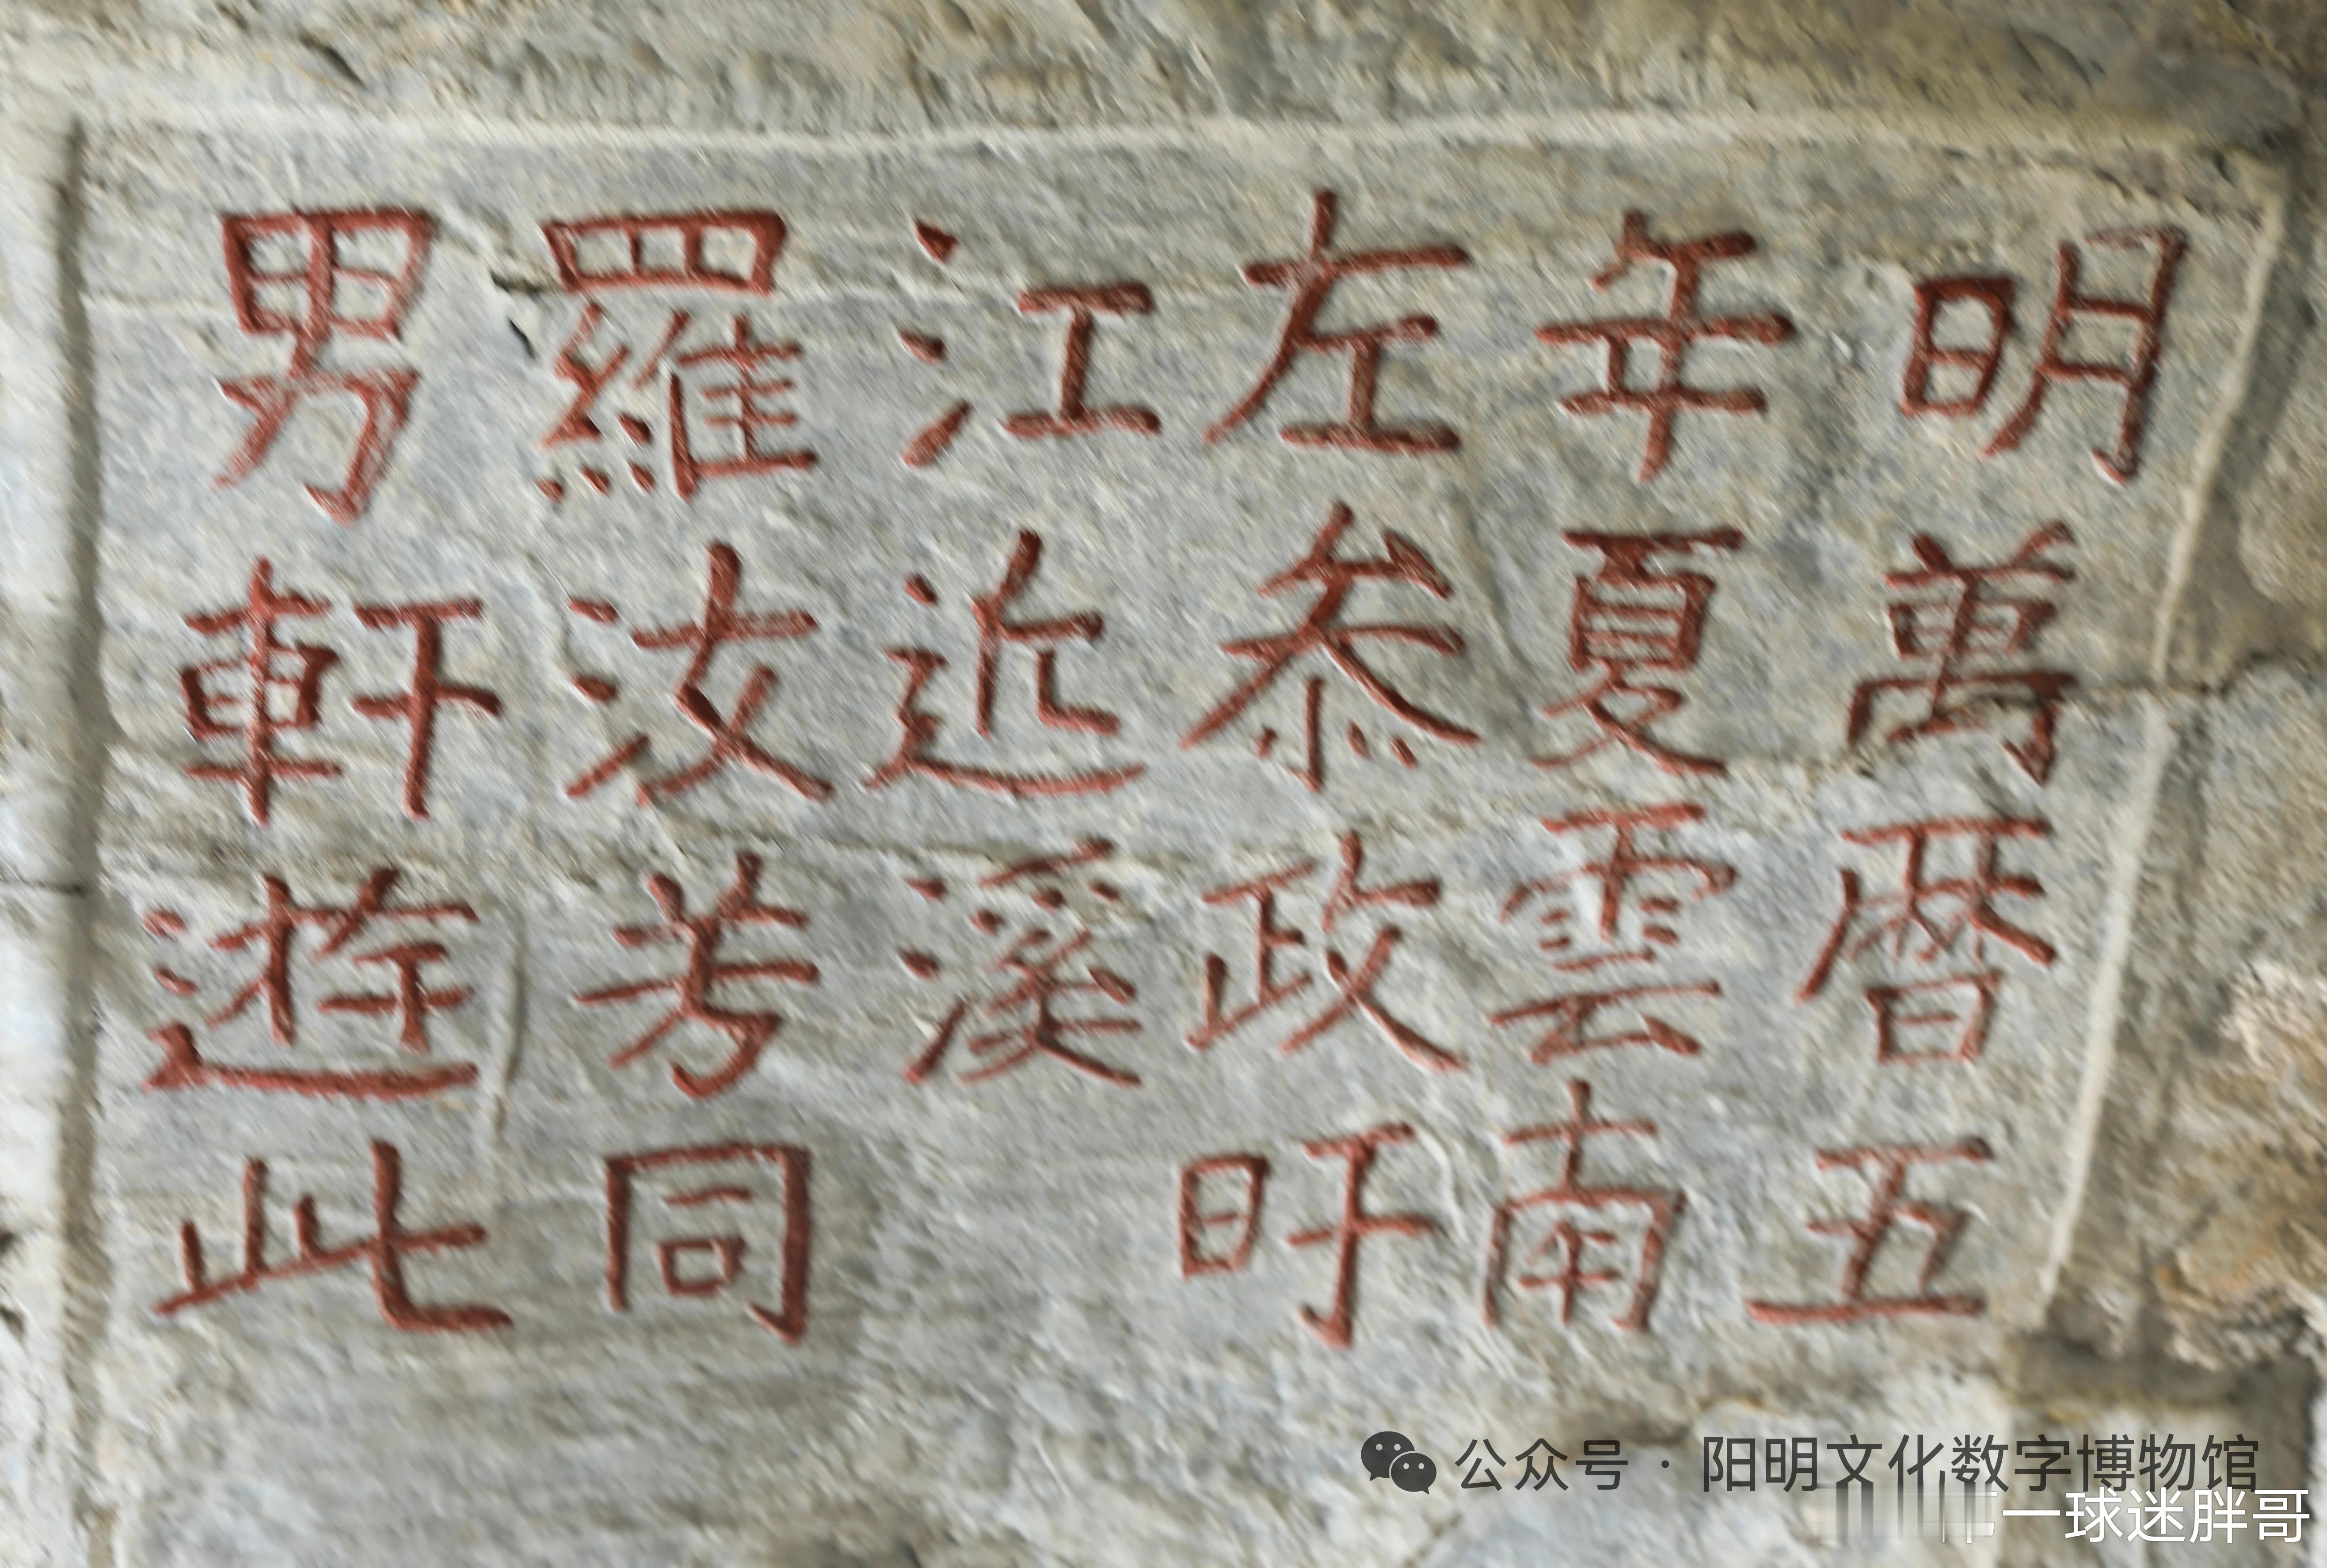 明萬曆五
年夏雲南
左参政旴
江近溪
羅汝芳同
男軒遊此
公众号 · 阳明文化数字博物馆
一球迷胖哥